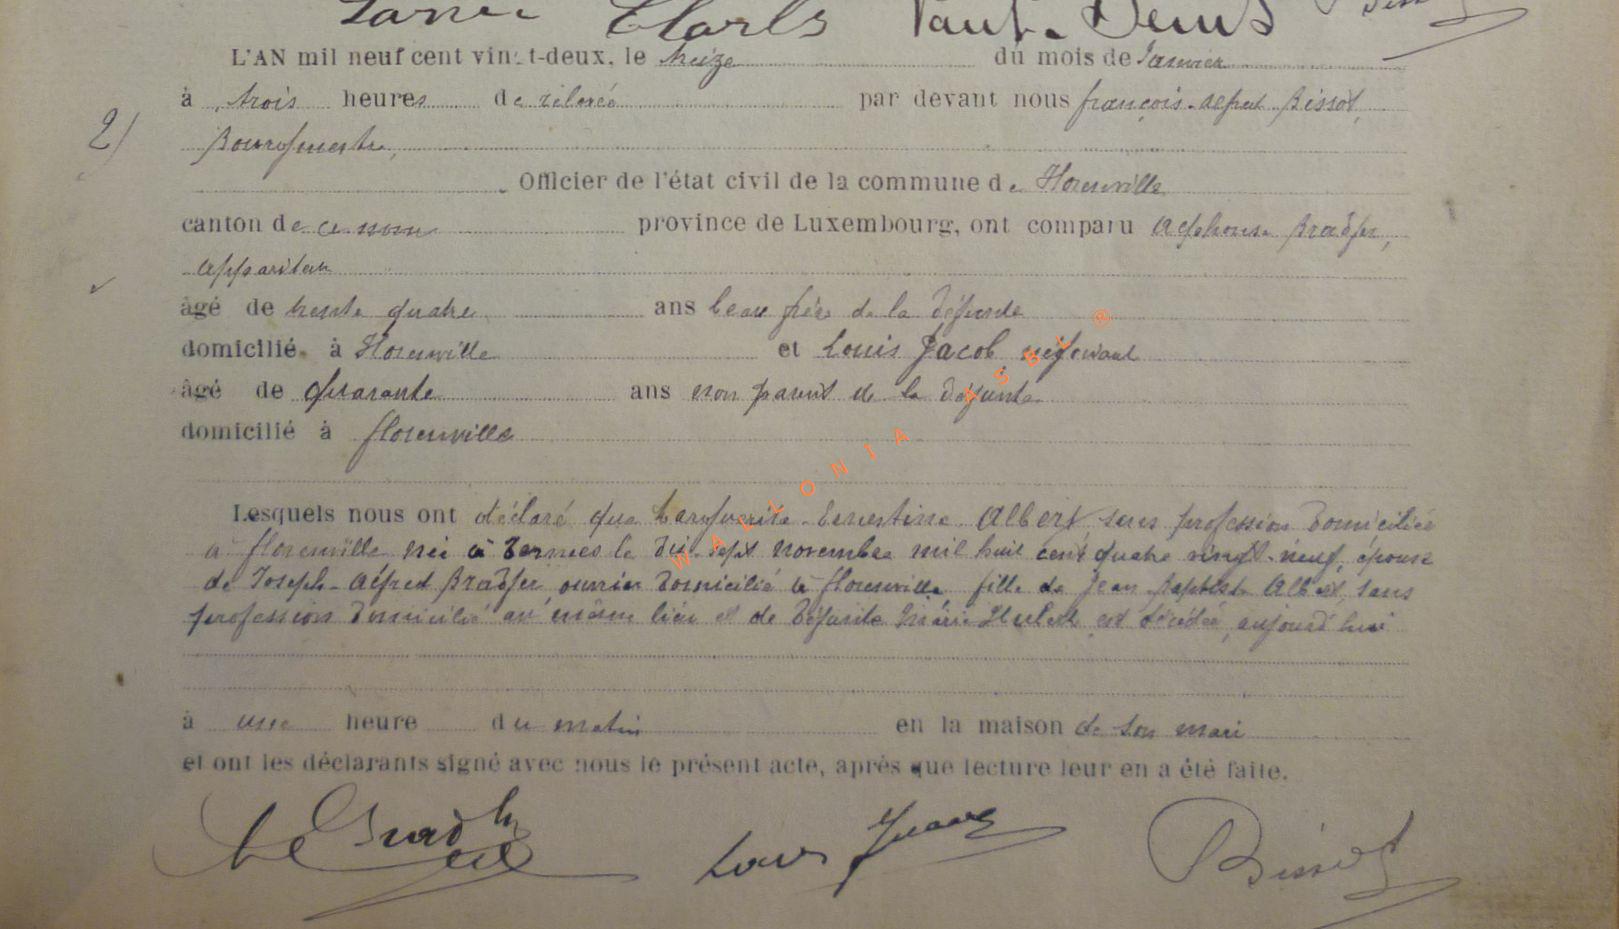 Paul-Denis
L'AN mil neuf cent vingt-deux, le treize du mois de Janvier
à trois heures de relevée par devant nous françois-Alfred Bissot,
2/ Bourgmestre,
Officier de l'état civil de la commune de Florenville
canton de ce nom province de Luxembourg, ont comparu Alphonse Bradfer,
appariteur
âgé de trente quatre ans beau frère de la défunte
domicilié à Florenville et Louis Jacob négociant
âgé de quarante ans non parent de la défunte
domicilié à florenville
Lesquels nous ont déclaré que Marguerite-Ernestine Albert sans profession domiciliée
à florenville née à le dix-sept novembre mil huit cent quatre vingt-neuf, épouse
de Joseph-Alfred Bradfer, ouvrier domicilié à florenville fille de Jean Baptiste Albert, sans
profession domicilié au même lieu et de défunte Marie Hubert est décédée, aujourd'hui
à une heure du matin en la maison de son mari
et ont les déclarants signé avec nous le présent acte, après que lecture leur en a été faite.
Bissot
WALLONIA ASBL ®